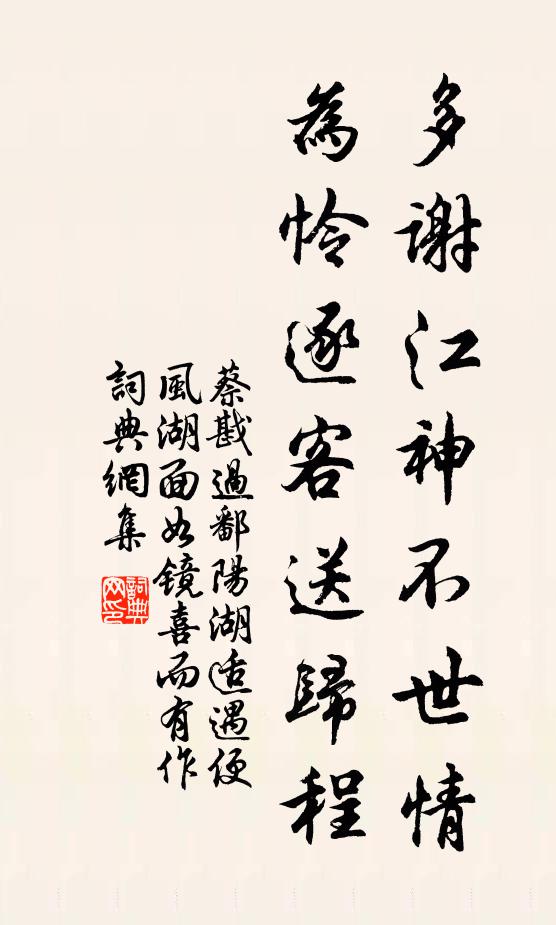 多謝江神不世情
為怜逐客送歸程
蔡戡過鄱陽湖适遇便
風湖面如镜喜而有作
詞典網集
詞典網印